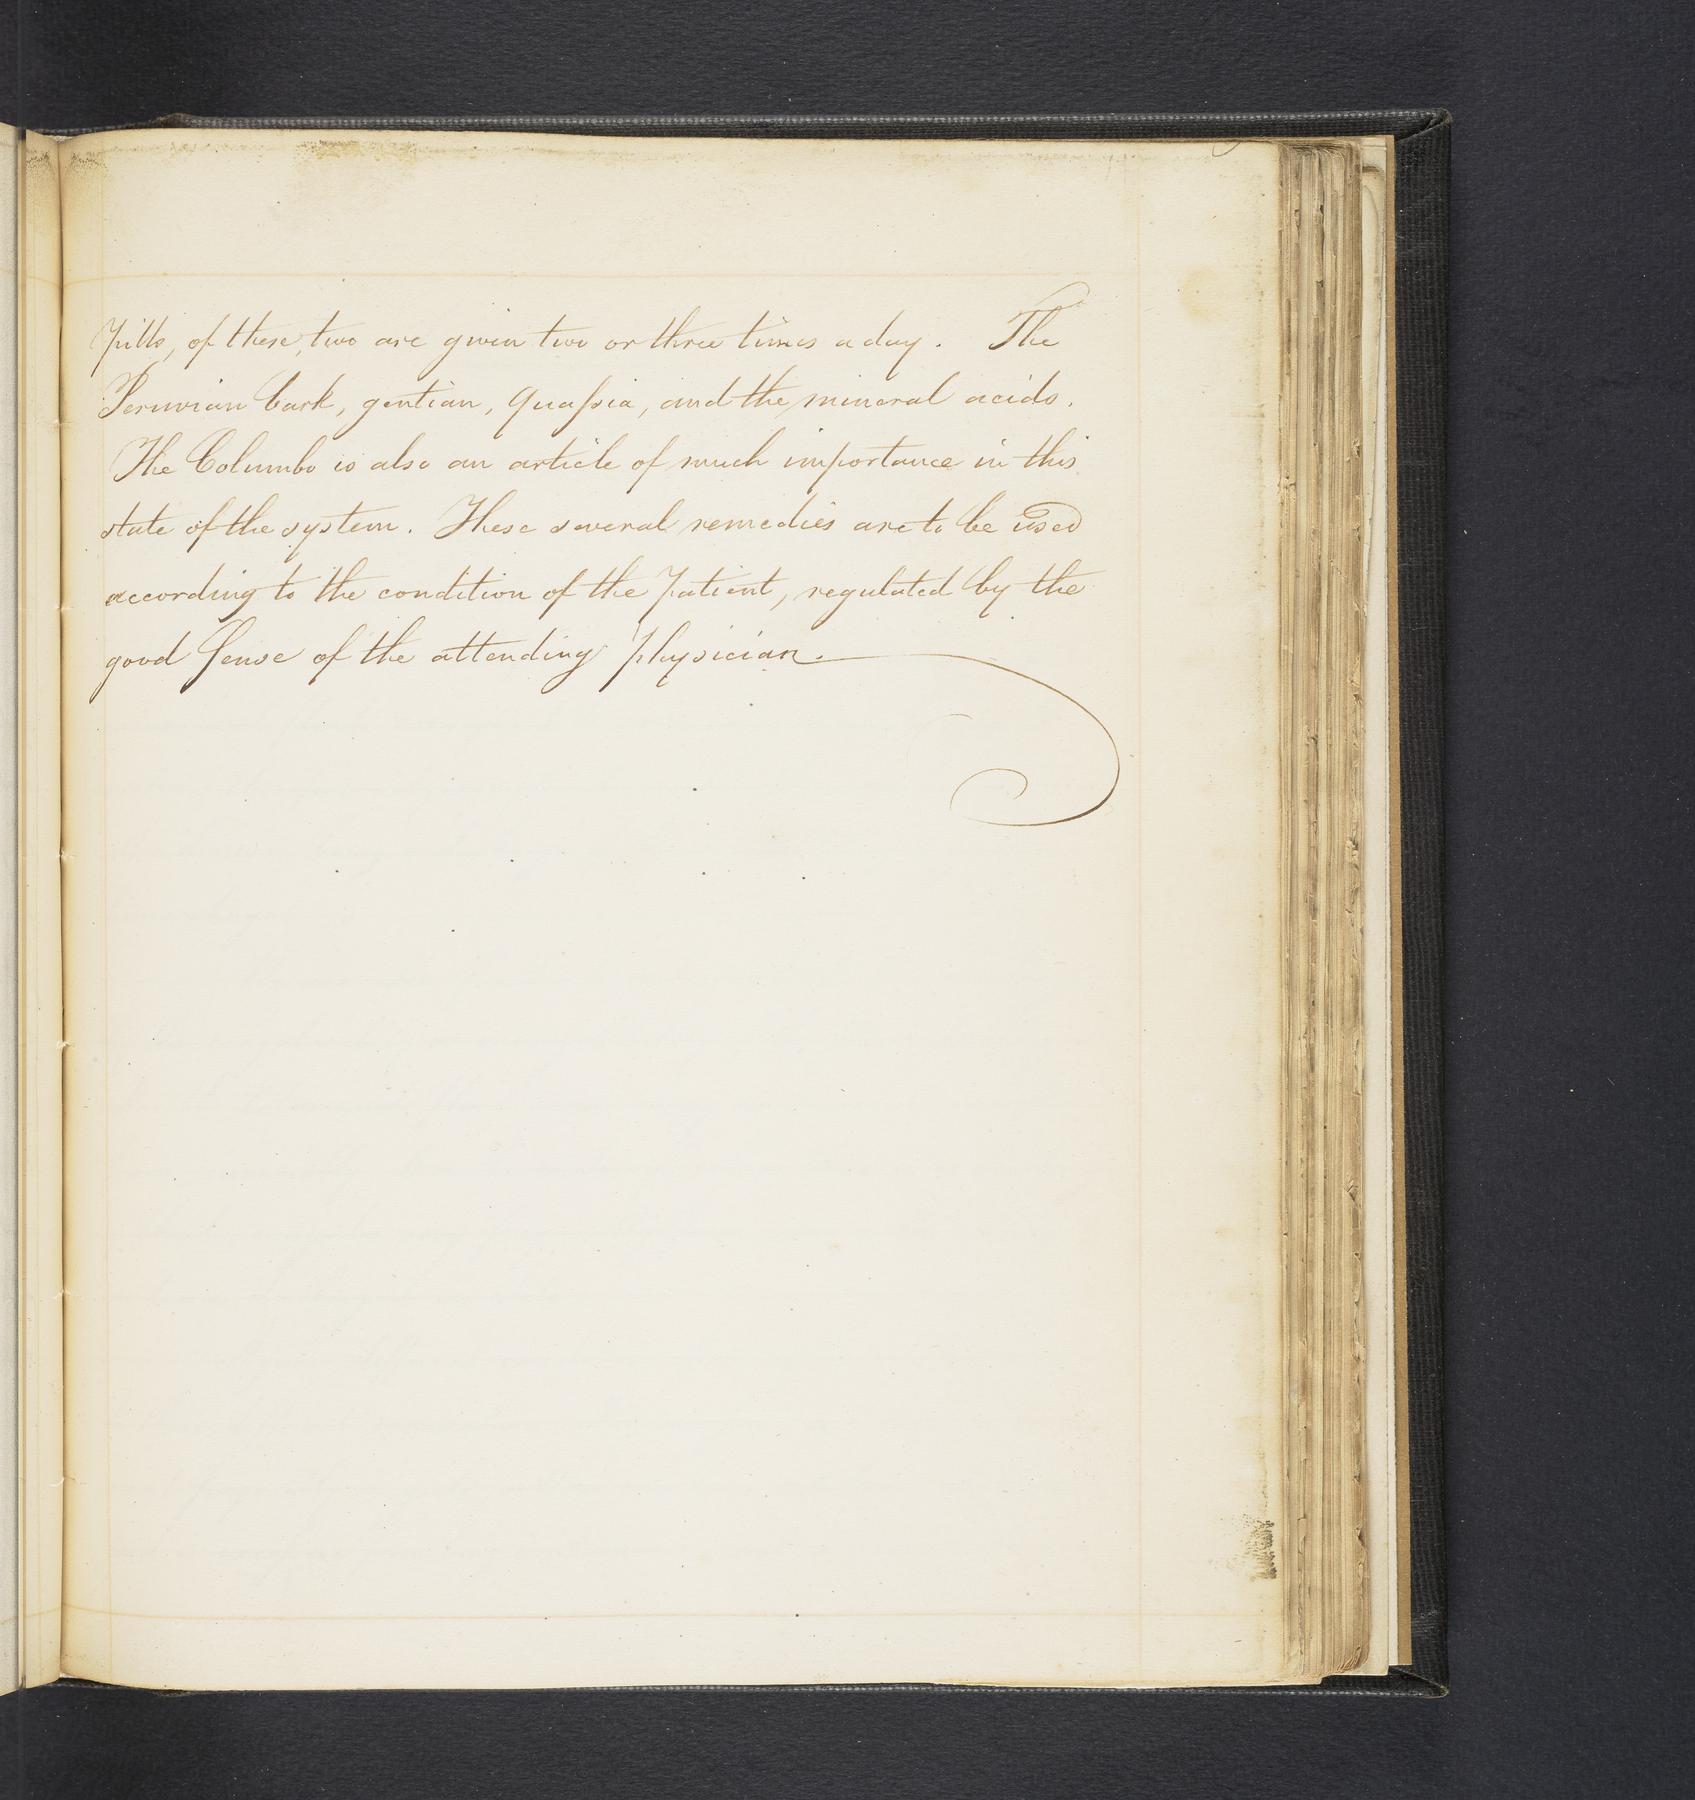 pills, of these, two are given two or three times a day. The
Peruvian bark, gentian, quaſsia, and the mineral acids.
The Columbo is also an article of much importance in this
state of the system. These several remedies are to be used
according to the condition of the patient, regulated by the
good Sense of the attending physician.